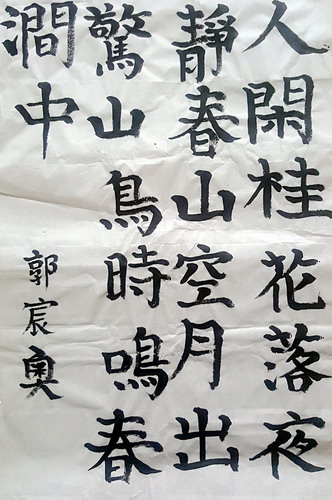 人閑桂花落夜
靜春山空月出
驚山鳥時鳴春
澗中
郭宸奧